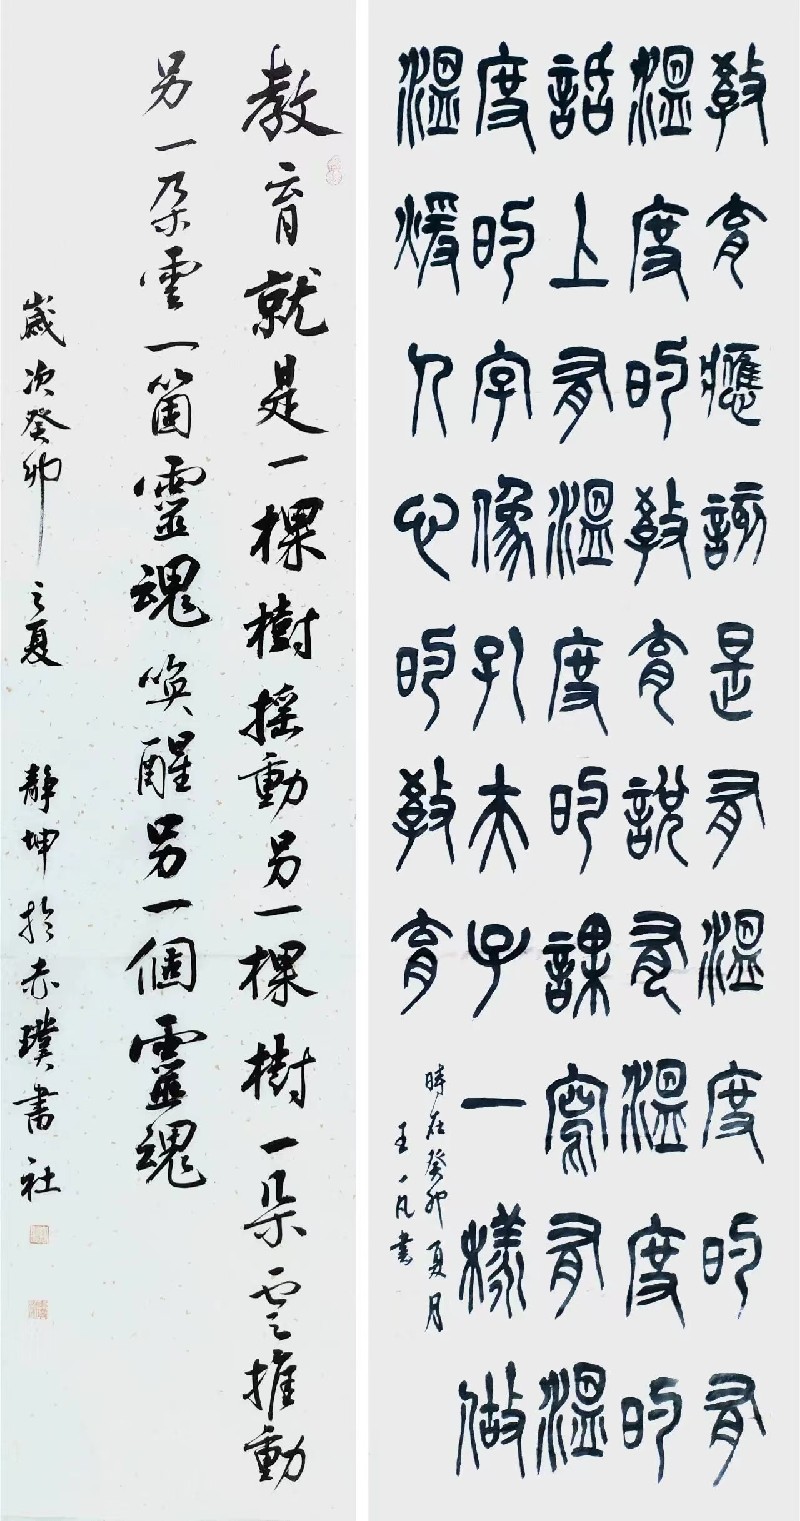 教育應該是有溫度的有
溫度的教育說有溫度的
話上有溫度的課寫有溫
度的字像孔夫子一樣做
溫煖人心的教育
時在癸卯夏月
王一凡書
教育就是一棵樹摇動另一棵樹一朵雲推動
另一朵雲一箇靈魂喚醒另一個靈魂
歲次癸卯之夏 靜坤於赤璞書社